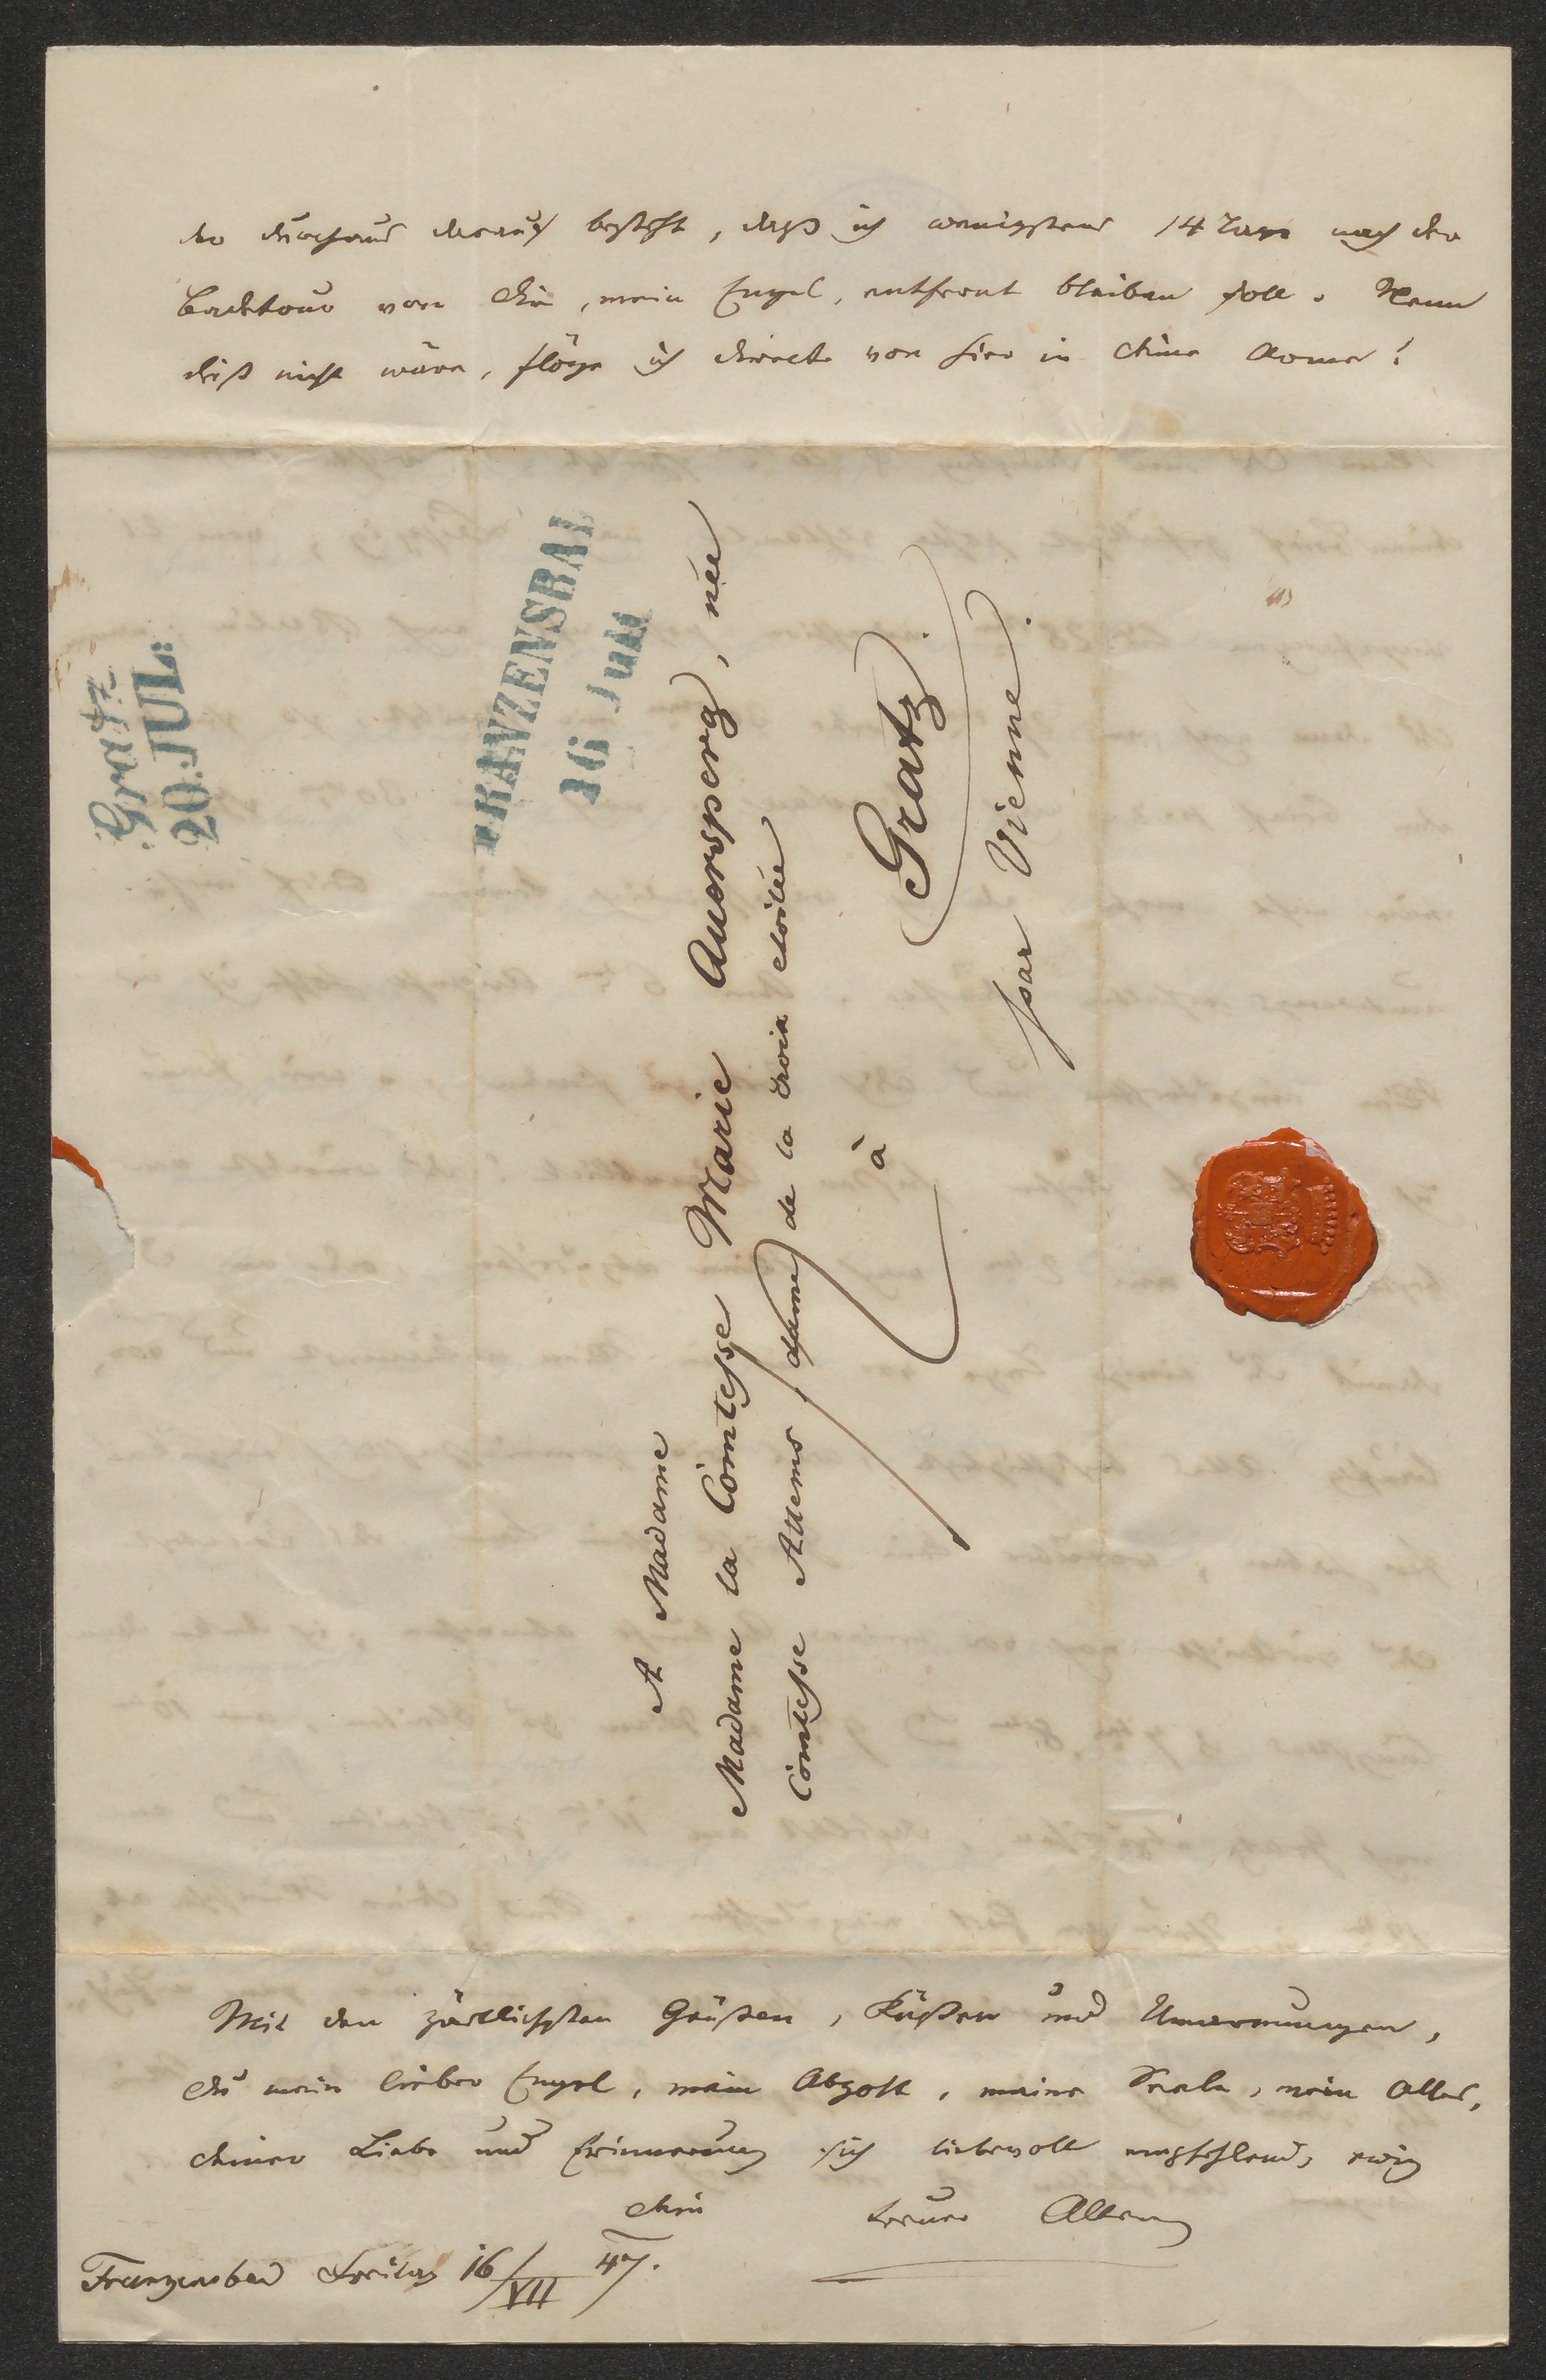 der durchaus darauf besteht, daß ich wenigstens 14 Tage nach der
Badekour von Dir, mein Engel, entfernt bleiben soll. Wenn
dieß nicht wäre, flöge ich directe von hier in Deine Arme!
FRANZENSBAD
16 Juli
Gratz
20. JUL:
A Madame
Madame la Comtesse Marie Auersperg, née
Comtesse Attems, dame de la croix étoilée
à Gratz.
par Vienne.
Mit den zärtlichsten Grüßen, Küßen und Umarmungen,
Du mein lieber Engel, mein Abgott, meine Seele, mein Alles,
Deiner Liebe und Erinnerung sich liebevoll empfehlend, ewig
Dein treuer
Franzensbad Freitag 16/VII 47.